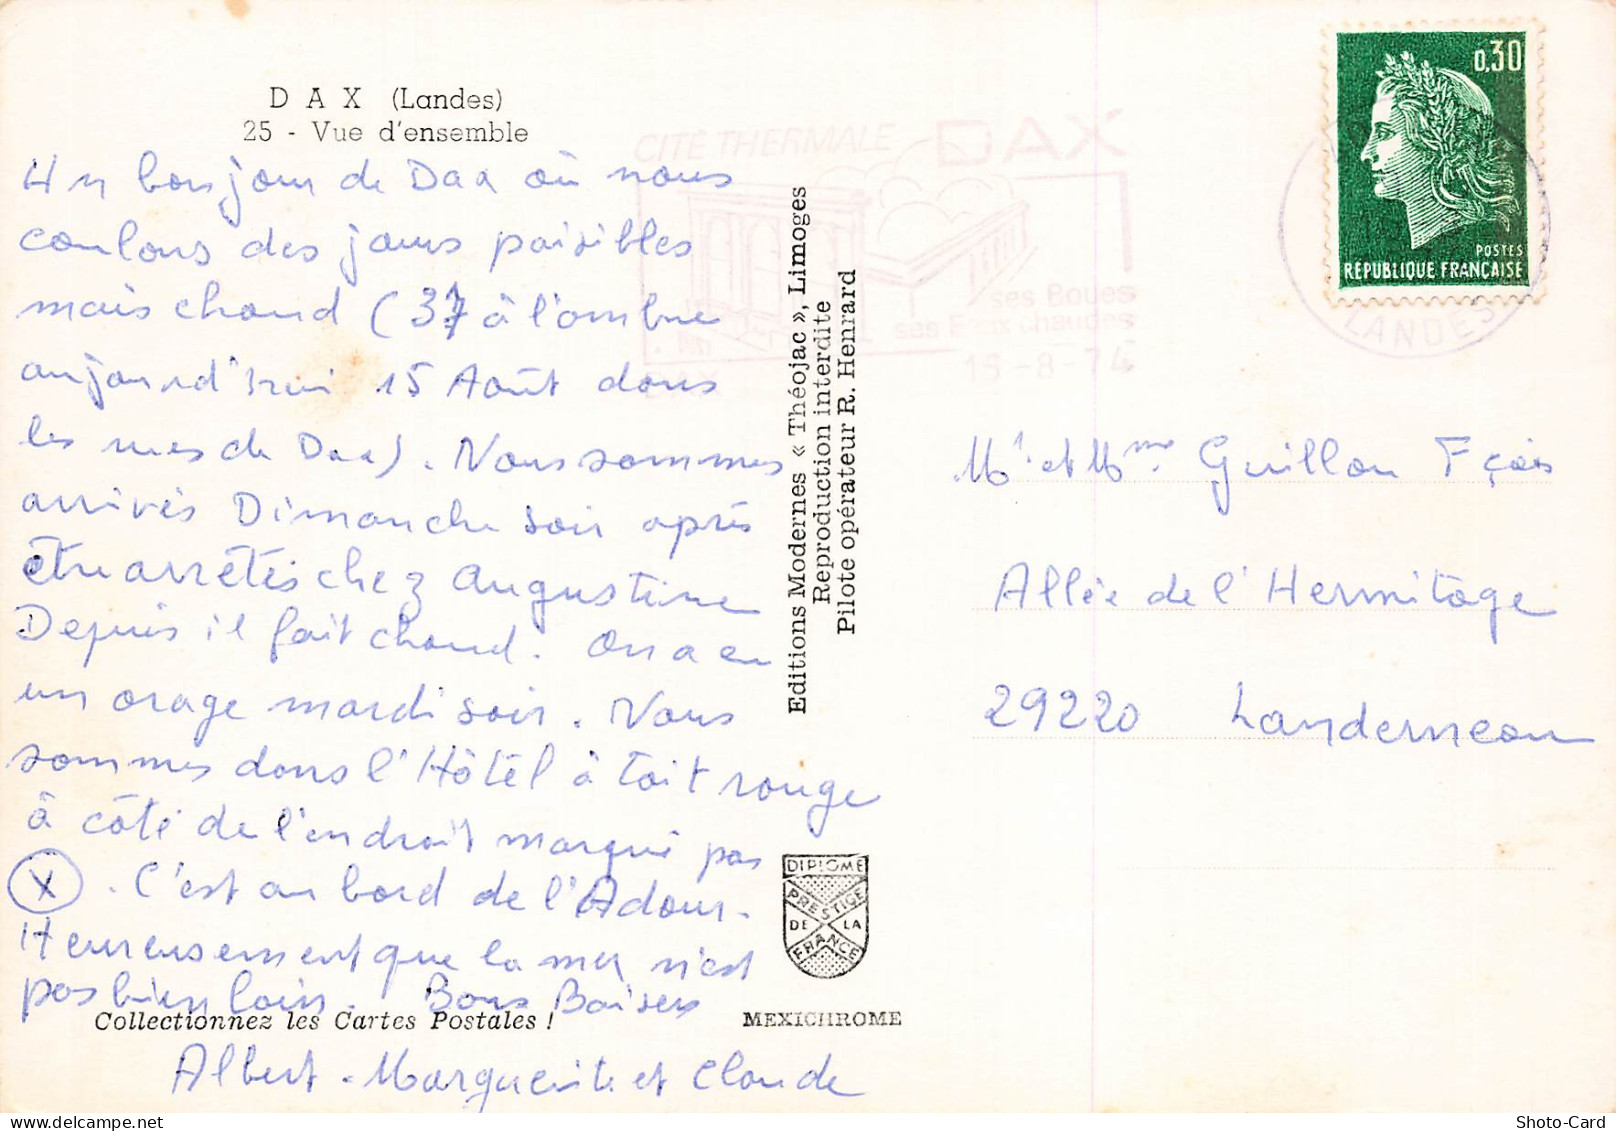 D A X (Landes)
25 - Vue d'ensemble
Un bonjour de Dax où nous
coulons des jours paisibles
mais chaud (37 à l'ombre
aujourd'hui 15 Août dans
les rues de Dax). Nous sommes
arrivés Dimanche soir après
être arrêtés chez Augustine
Depuis il fait chaud. On a eu
un orage mardi soir. Nous
sommes dans l'Hôtel à toit rouge
à côté de l'endroit marqué pas
X. C'est au bord de l'Adour.
Heureusement que la mer n'est
pas bien loin. Bons Baisers
Albert. Marguerite et Claude
Collectionnez les Cartes Postales !
Editions Modernes « Théojac », Limoges
Reproduction interdite
Pilote opérateur R. Henrard
DIPLOME
PRESTIGE
DE LA
FRANCE
MEXICHROME
CITÉ THERMALE DAX
ses Boues
ses Eaux chaudes
DAX
-8-74
LANDES
0,30
POSTES
RÉPUBLIQUE FRANÇAISE
Mr et Mme Guillou Fçois
Allée de l'Hermitage
29220 Landerneau
Shoto-Card